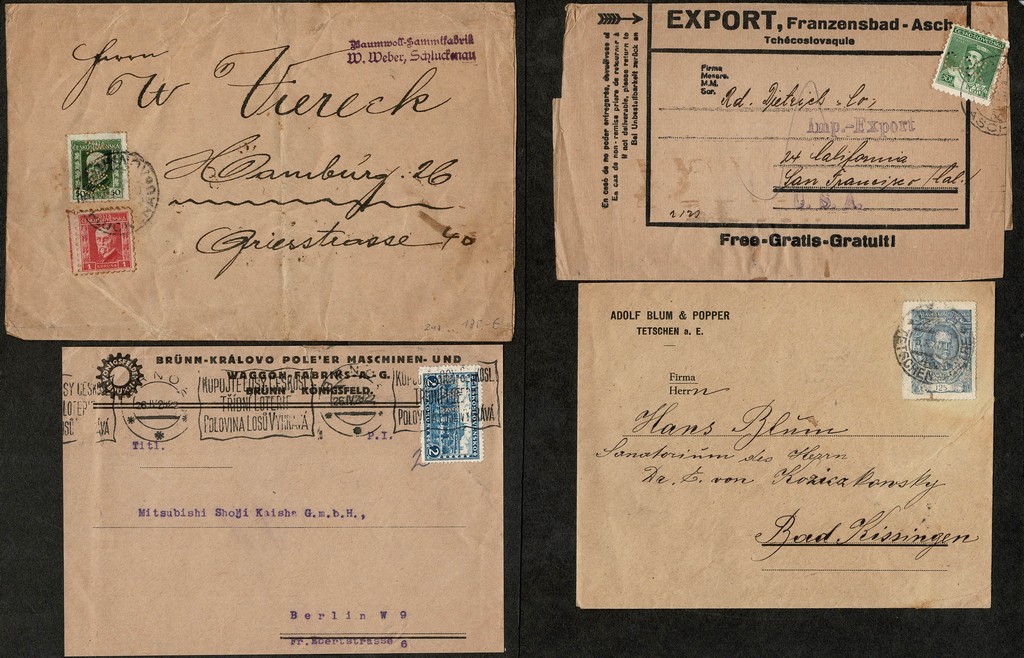 Baumwoll-Sammtfabrik
W. Weber, Schluckenau
Herrn
W Viereck
Hamburg 26
Grierstrasse 40
1 KORUNA 1
EXPORT, Franzensbad-Asch
Tchécoslovaquie
Firma
Messrs.
M.M.
Sor.
Rd. Dietrich & Co,
Imp.-Export
24 California
San Francisco Cal.
U. S. A.
Free-Gratis-Gratuit!
En caso de no poder entregarse, devuélvase al
En cas de non-remise prière de retourner à
If not deliverable, please return to
Bei Unbestellbarkeit zurück an
BRÜNN-KRÁLOVO POLE'ER MASCHINEN- UND
WAGGON-FABRIKS-A. G.
BRÜNN - KÖNIGSFELD.
KUPUJTE LOSY ČESKOSL.
TŘÍDNÍ LOTERIE
POLOVINA LOSŮ VYHRÁVÁ
2 2
Titl.
P.T.
2
Mitsubishi Shoji Kaisha G.m.b.H.,
Berlin W 9
Fr.Ebertstrasse 6
ADOLF BLUM & POPPER
TETSCHEN a. E.
125
TETSCHEN
Firma
Herrn
Hans Blum
Sanatorium des Herrn
Dr. E. von Koziczkowsky
Bad Kissingen